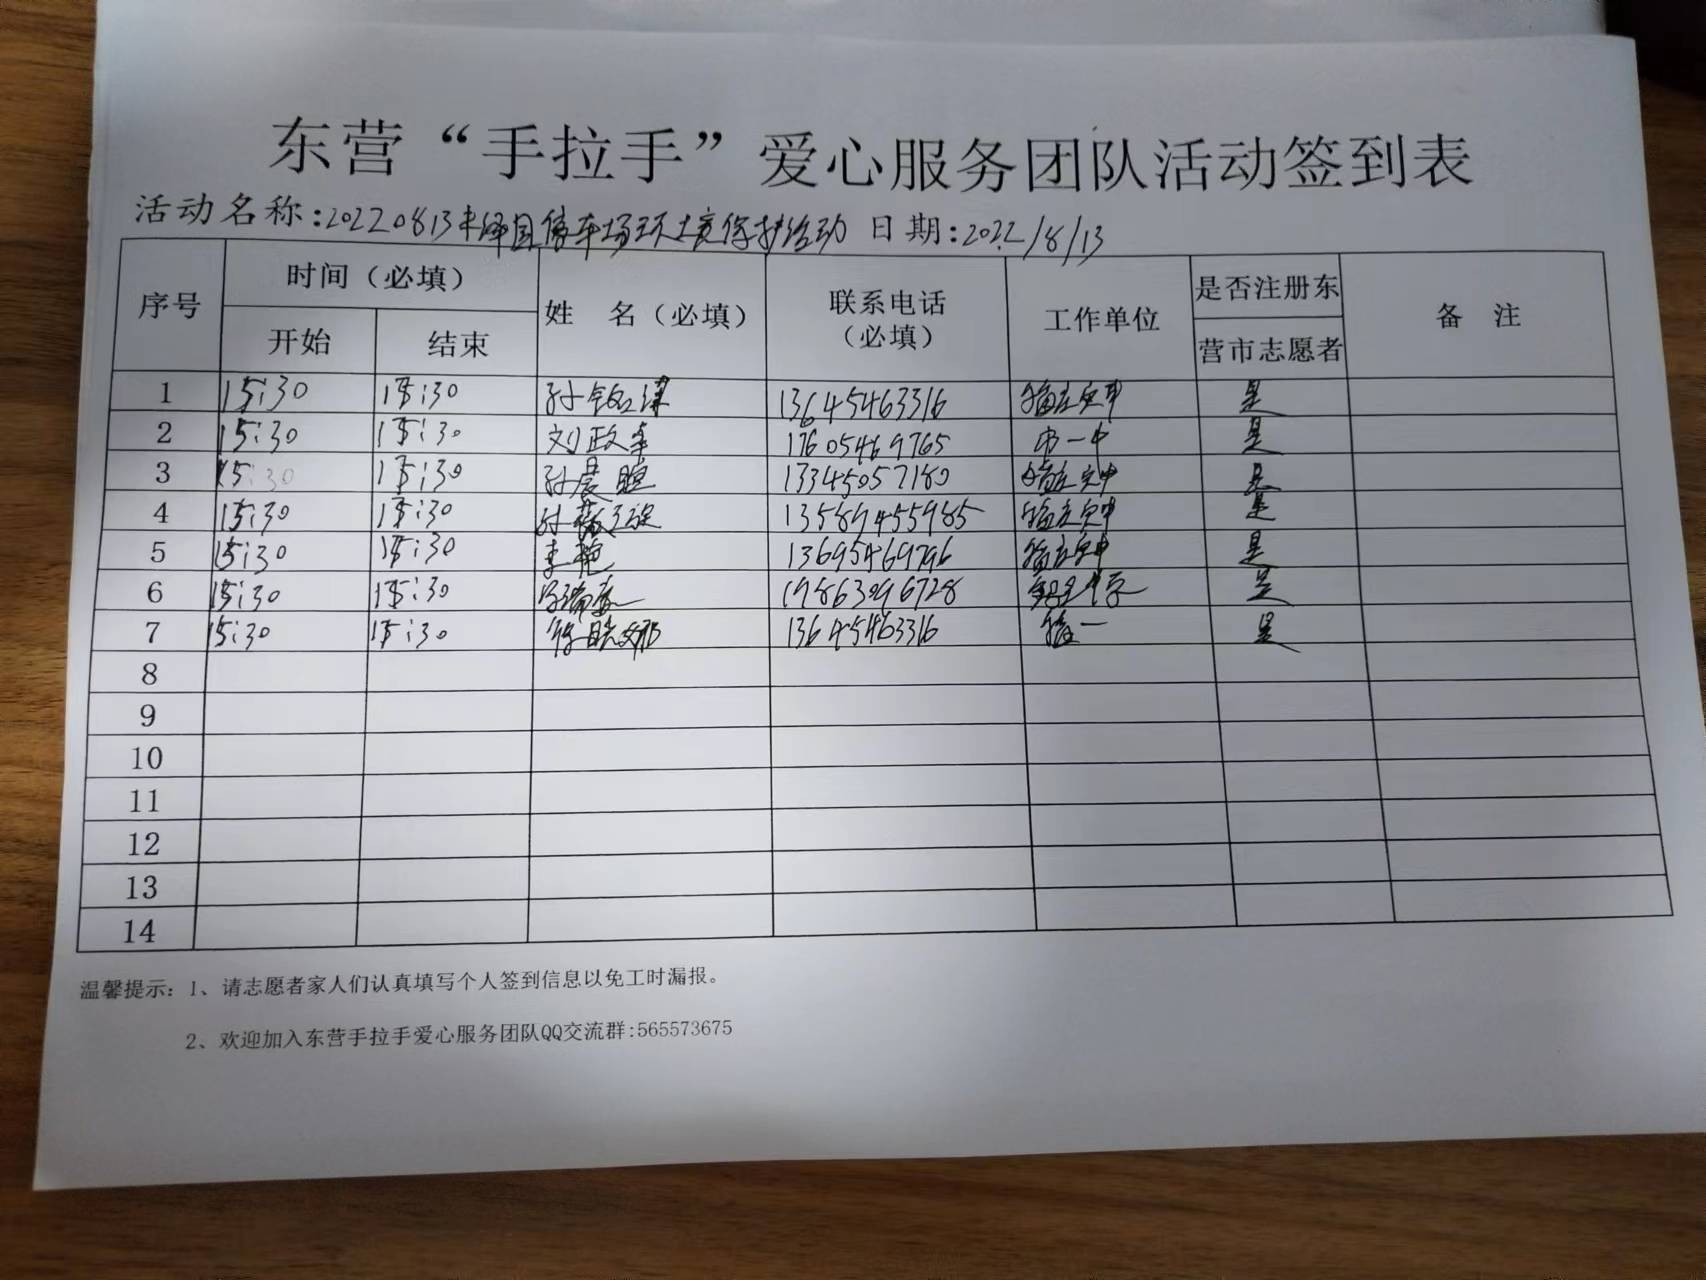 东营“手拉手”爱心服务团队活动签到表
活动名称:20220813 停车场环境保护活动 日期:2022/8/13
序号 时间（必填） 姓 名（必填） 联系电话（必填） 工作单位 是否注册东营市志愿者 备 注
开始 结束
1 15:30 15:30 孙铭泽 13645463316 是
2 15:30 15:30 刘政 17605469765 市一中 是
3 15:30 15:30 孙晨瞳 13345057180 是
4 15:30 15:30 孙 13589455985 是
5 15:30 15:30 李艳 13695469796 是
6 15:30 15:30 19863096728 是
7 15:30 15:30 徐晓娜 13645463316 是
8
9
10
11
12
13
14
温馨提示：1、请志愿者家人们认真填写个人签到信息以免工时漏报。
2、欢迎加入东营手拉手爱心服务团队QQ交流群:565573675